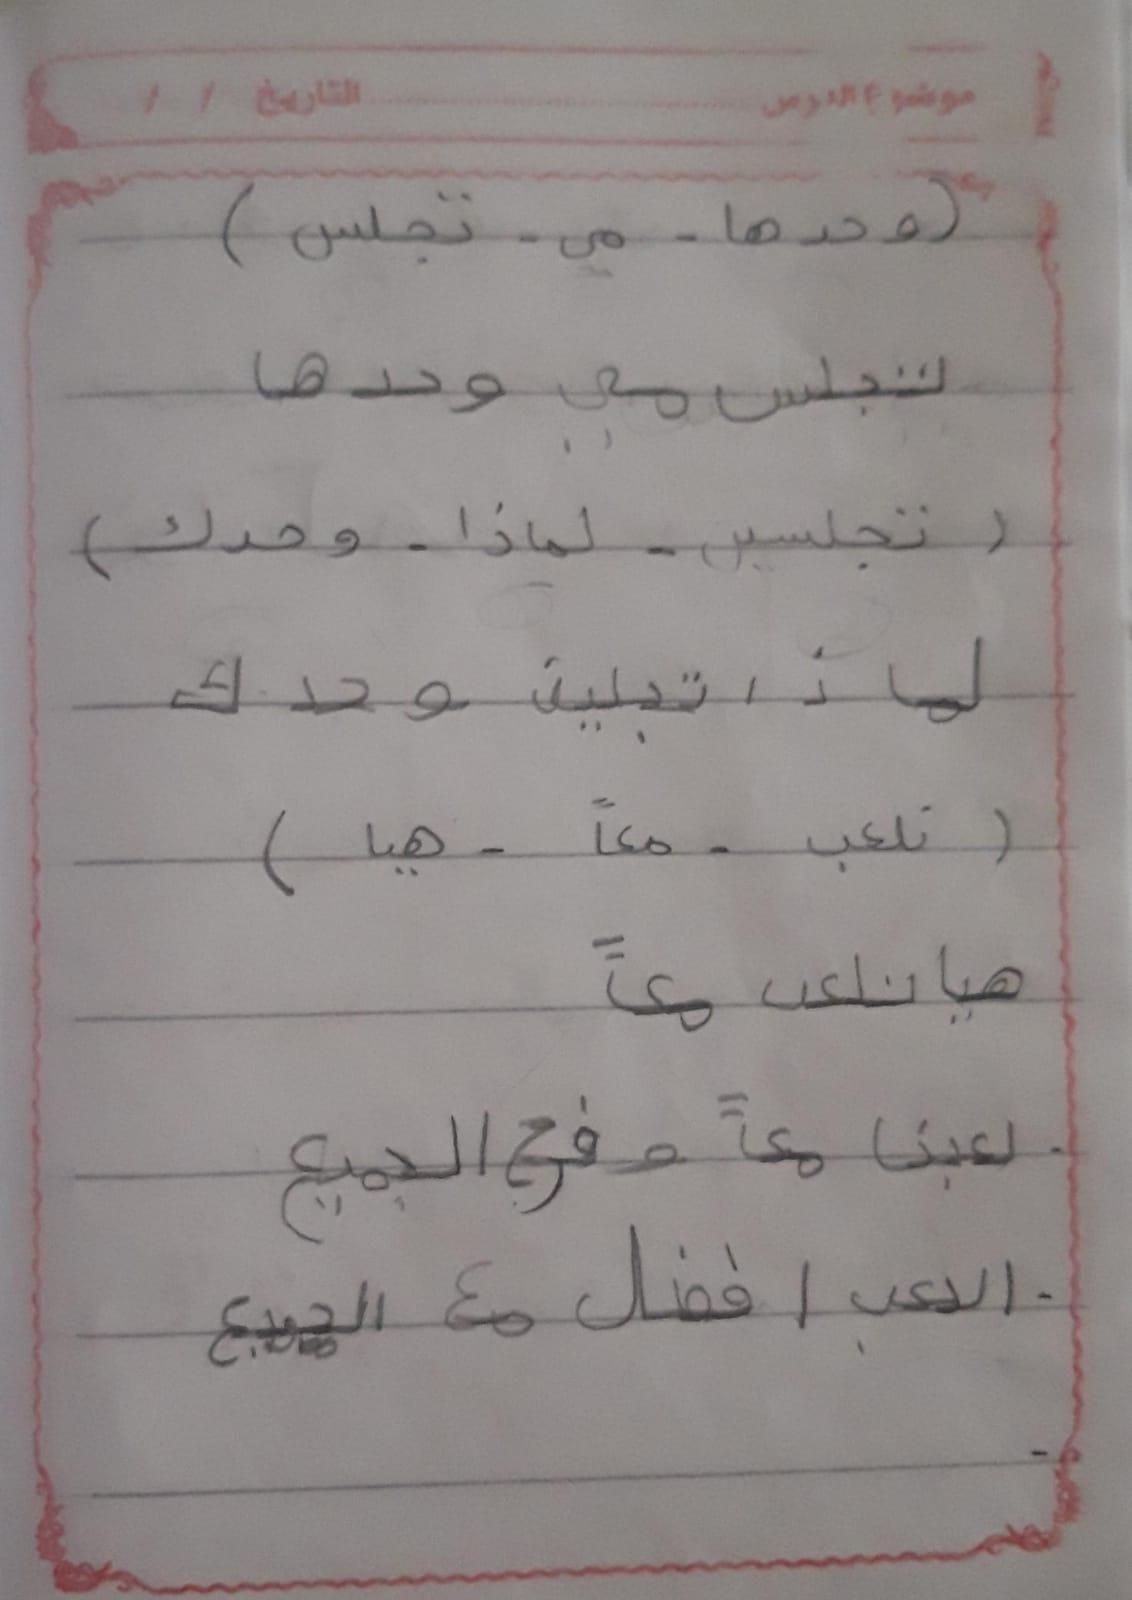 موضوع الدرس التاريخ / /
(وحدها - مي - تجلس)
تتجلس مي وحدها
(تجلسين - لماذا - وحدك)
لماذا وحدك
(نلعب - معاً - هيا)
هيا نلعب معاً
- لعبنا معاً و فرح الجميع
- العب افضل مع الجميع
-